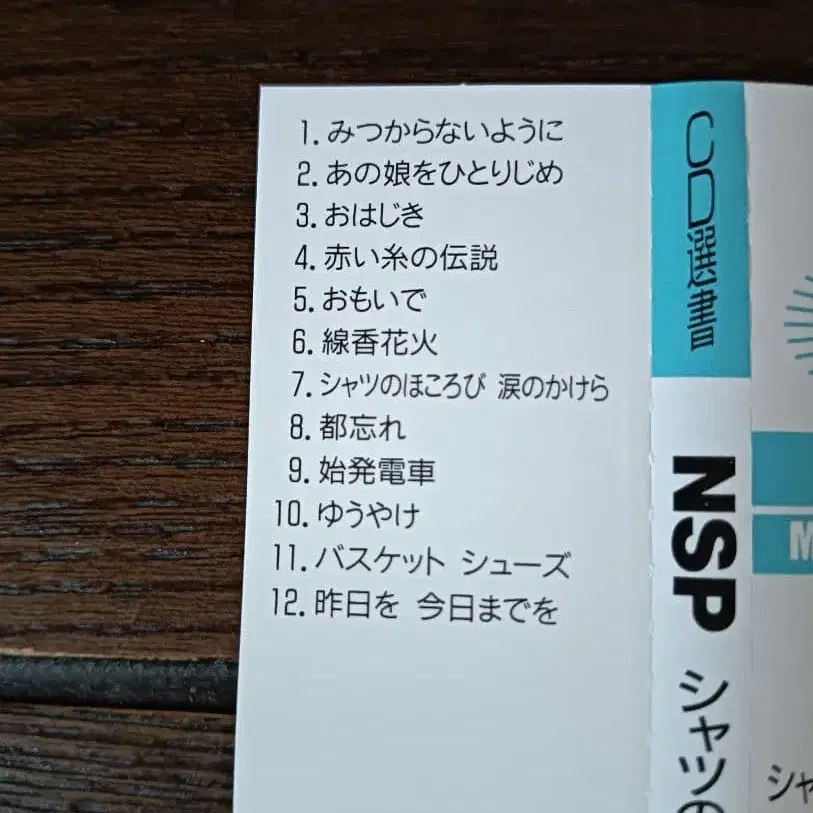 1. みつからないように
2. あの娘をひとりじめ
3. おはじき
4. 赤い糸の伝説
5. おもいで
6. 線香花火
7. シャツのほころび 涙のかけら
8. 都忘れ
9. 始発電車
10. ゆうやけ
11. バスケット シューズ
12. 昨日を 今日までを
CD選書
NSP シャツの
M
シャ